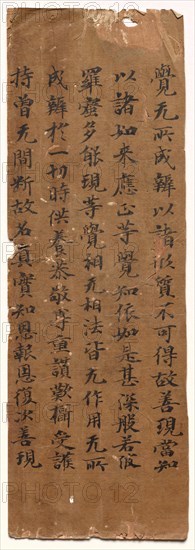 覺无所成辦以諸形質不可得故善現當知
以諸如来應正等覺知依如是甚深般若波
羅蜜多能現等覺相无相法皆无作用无所
成辦於一切時供養恭敬尊重讚歎攝受護
持曾无間斷故名真實知恩報恩復次善現